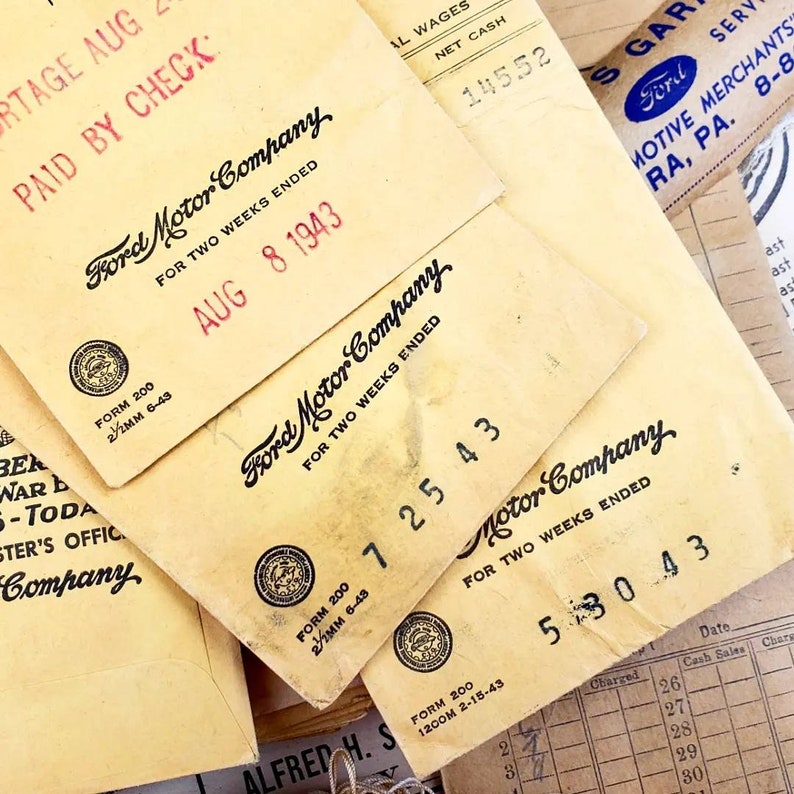 ORTAGE AUG 2
PAID BY CHECK
Ford Motor Company
FOR TWO WEEKS ENDED
AUG 8 1943
FORM 200
2½MM 6-43
Ford Motor Company
FOR TWO WEEKS ENDED
7 25 43
FORM 200
2½MM 6-43
AL WAGES
NET CASH
14552
Motor Company
FOR TWO WEEKS ENDED
5 30 43
FORM 200
1200M 2-15-43
S GAR
SERVI
Ford
MOTIVE MERCHANTS'
RA, PA. 8-8
ast
ast
ast
BER
WAR B
S-TODA
STER'S OFFIC
Company
ALFRED H. S
Date
Charged
Cash Sales
Charg
26
27
28
29
30
31
2
3